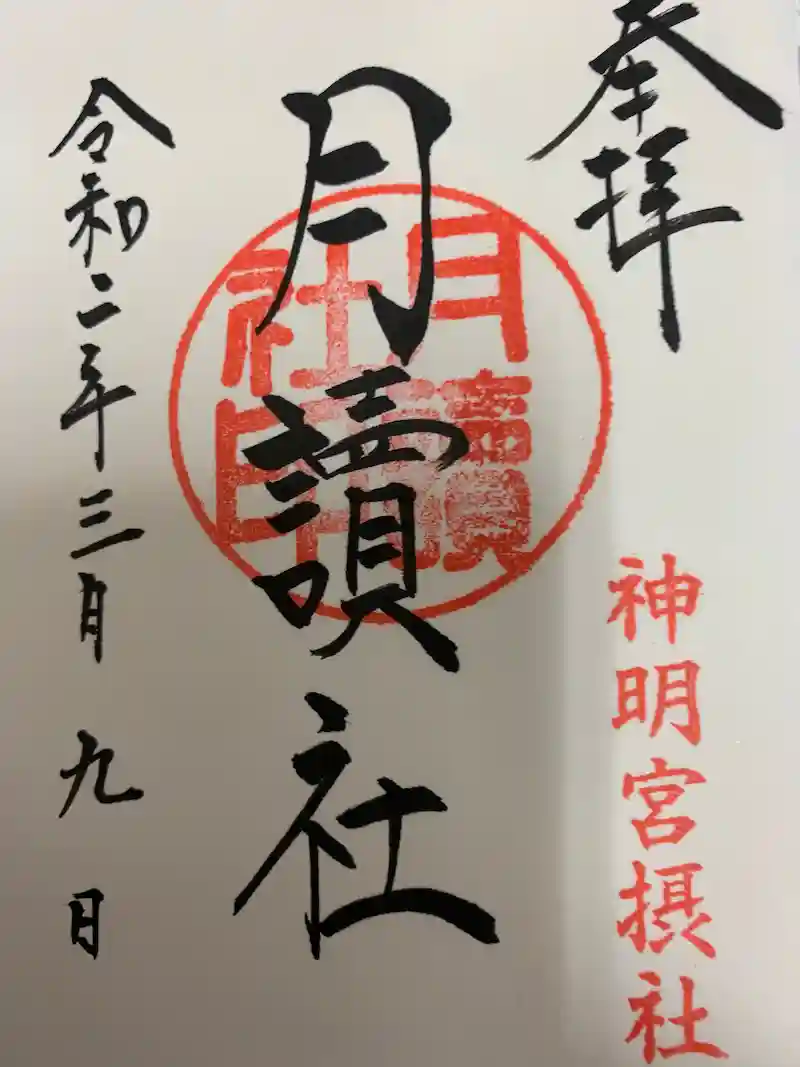 奉拝
神明宮摂社
月讀社
月讀社印
令和二年三月九日